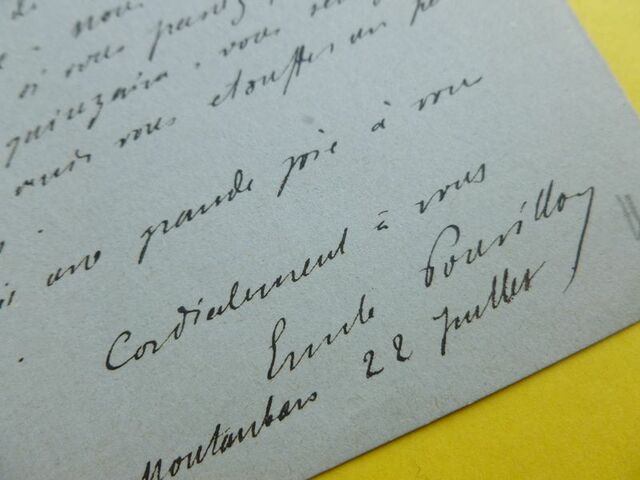 nous
si vous passez
quinzaine. vous
vous étouffer un pe
une grande joie à vou
Cordialement à vous
Emile Pouvillon
Montauban 22 juillet